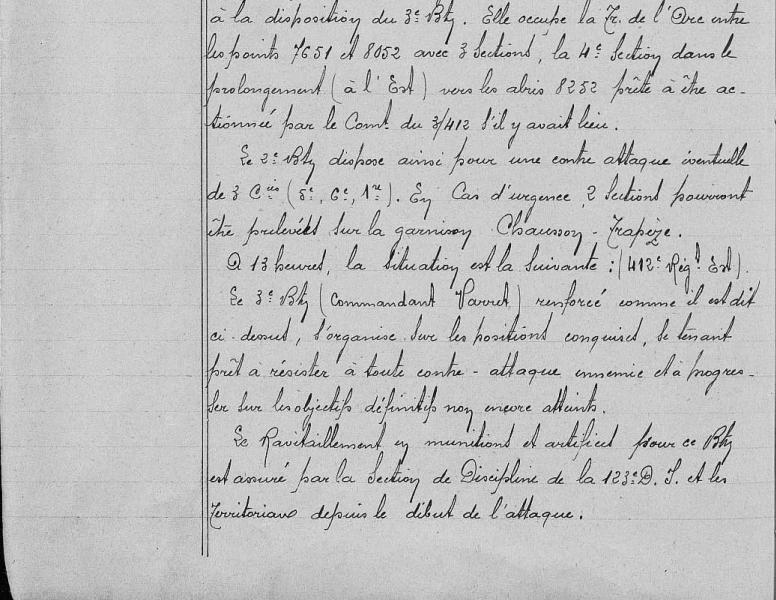 à la disposition du 3e Btn. Elle occupe la Tr. de l'Orc entre
les points 7651 et 8052 avec 3 Sections, la 4e Section dans le
prolongement (à l'Est) vers les abris 8252 prête à être ac-
tionnée par le Comt. du 3/412 s'il y avait lieu.
Le 2e Btn dispose ainsi pour une contre attaque éventuelle
de 3 Cies (5e, 6e, 1re). En Cas d'urgence 2 Sections pourront
être prélevées sur la garnison Chausson - Trapèze.
A 13 heures, la Situation est la Suivante : (412e Régt. Est).
Le 3e Btn (Commandant) renforcé comme il est dit
ci-dessus, s'organise sur les positions conquises, se tenant
prêt à résister à toute contre-attaque ennemie et à progres-
ser sur les objectifs définitifs non encore atteints.
Le Ravitaillement en munitions et artifices pour ce Btn
est assuré par la Section de Discipline de la 123e D. I. et les
Territoriaux depuis le début de l'attaque.